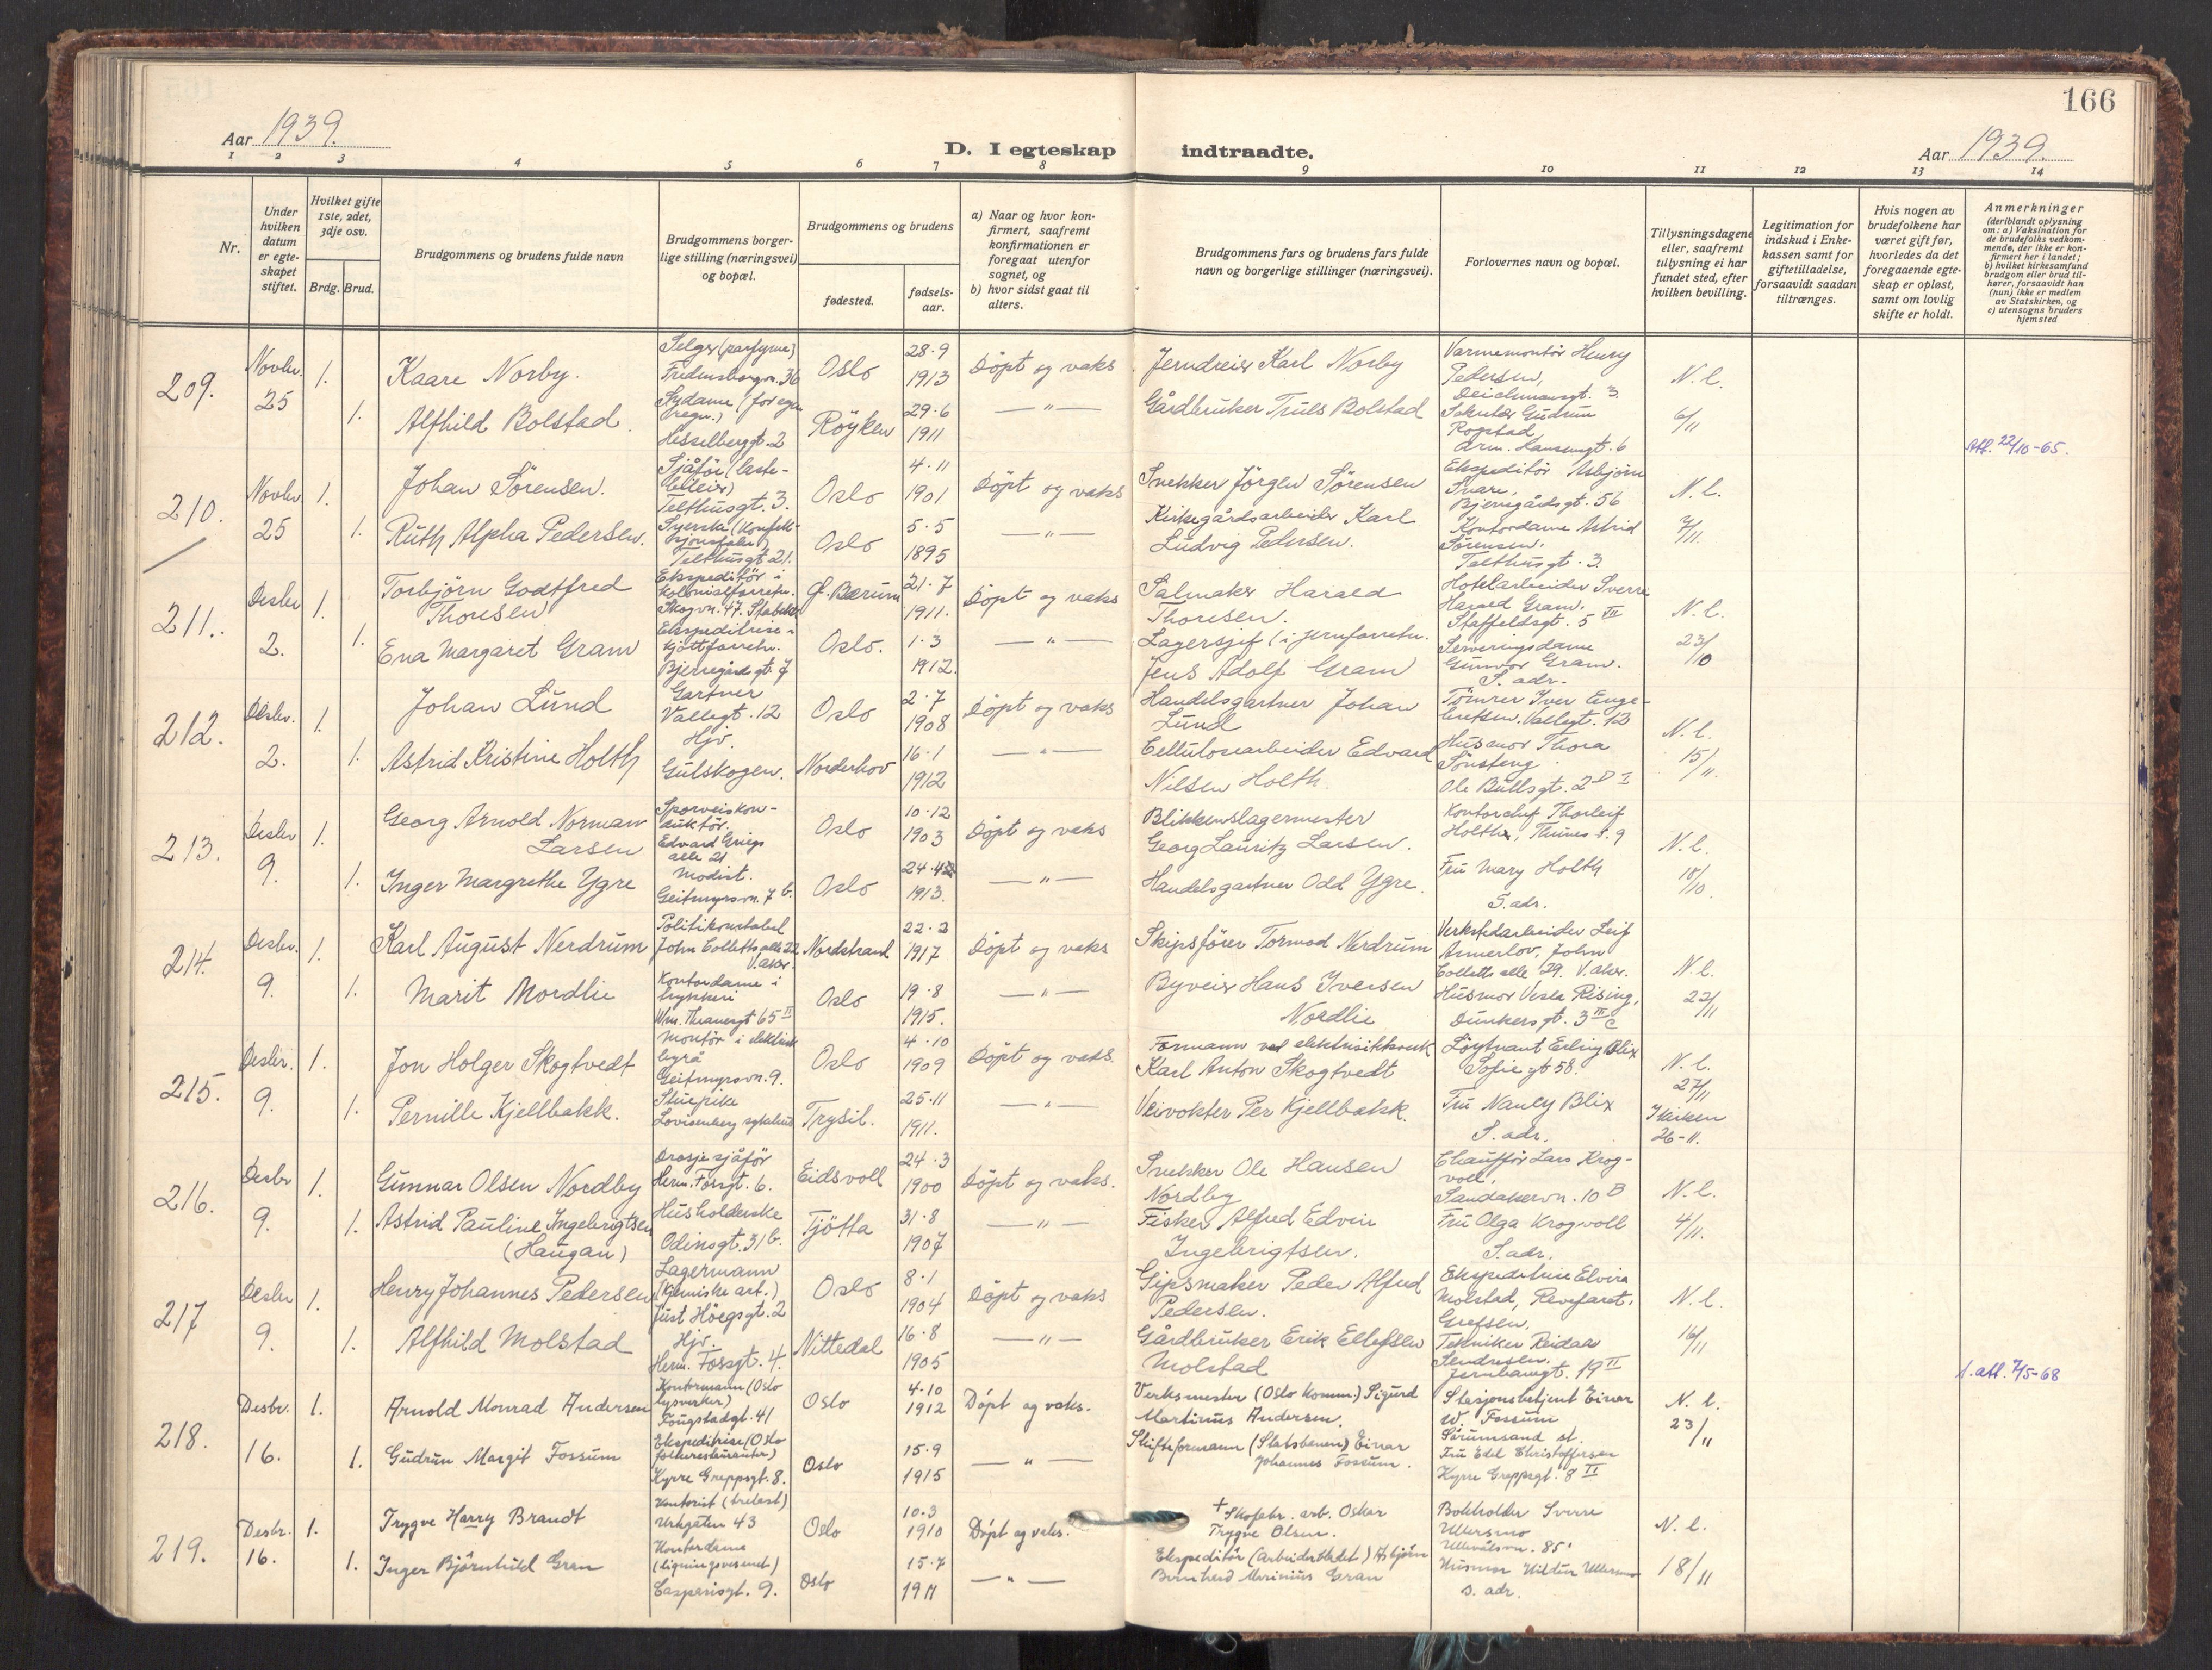 166
Aar 1939.
D. I egteskap indtraadte.
Aar 1939.
1 2 3 4 5 6 7 8 9 10 11 12 13 14
Nr.
Under hvilken datum er egteskapet stiftet.
Hvilket gifte 1ste, 2det, 3dje osv.
Brdg. Brud.
Brudgommens og brudens fulde navn
Brudgommens borgerlige stilling (næringsvei) og bopæl.
Brudgommens og brudens
fødested.
fødselsaar.
a) Naar og hvor konfirmert, saafremt konfirmationen er foregaat utenfor sognet, og
b) hvor sidst gaat til alters.
Brudgommens fars og brudens fars fulde navn og borgerlige stillinger (næringsvei).
Forlovernes navn og bopæl.
Tillysningsdagene eller, saafremt tillysning ei har fundet sted, efter hvilken bevilling.
Legitimation for indskud i Enkekassen samt for giftetilladelse, forsaavidt saadan tiltrænges.
Hvis nogen av brudefolkene har været gift før, hvorledes da det foregaaende egteskap er opløst, samt om lovlig skifte er holdt.
Anmerkninger (deriblandt oplysning om: a) Vaksination for de brudefolks vedkommende, der ikke er konfirmert her i landet; b) hvilket kirkesamfund brudgom eller brud tilhører, forsaavidt han (hun) ikke er medlem av Statskirken, og c) utensogns bruders hjemsted
209. Novbr. 25 1. Kaare Norby. Selger (parfyme) Fredensborgvn. 36 Oslo 28.9 1913 Döpt og vaks Jerndreier Karl Norby Varmemontör Henry Pedersen, Deichmansgt. 3. N. l.
1. Alfhild Bolstad. Sydame (for egen regn.) Hesselberggt. 2 Röyken 29.6 1911 — " — Gårdbruker Truls Bolstad Sekretær Gudrun Rogstad Arm. Hansensgt. 6 6/11
Att. 22/10-65.
210. Novbr 25 1. Johan Sörensen. Sjåför (lastebileier) Telthusgt. 3. Oslo 4.11 1901 Döpt og vaks Snekker Jörgen Sörensen Ekspeditör Asbjörn Snare, Bjerregårdsgt. 56 N. l.
1. Ruth Alpha Pedersen. Syerske (konfeksjonsfabr.) Telthusgt 21. Oslo 5.5 1895 — " — Kirkegårdsarbeider Karl Ludvig Pedersen. Kontordame Astrid Sörensen, Telthusgt. 3. 7/11.
211. Desbr 2. 1. Torbjörn Godtfred Thoresen Ekspeditör i kolonialforretn. Skogvn. 47. Stabekk Ö. Bærum 21.7 1911. Döpt og vaks Salmaker Harald Thoresen. Hotelarbeider Sverre Harald Gram. Staffeldsgt. 5 III N. l.
1. Ena Margaret Gram Ekspeditrise i kjöttforretn. Bjerregårdsgt. 7 Oslo. 1.3 1912. — " — Lagersjef (i jernforretn. Jens Adolf Gram Serveringsdame Gunvor Gram. S. adr. 23/10
212. Desbr. 2. 1. Johan Lund Gartner Vallegt. 12 Oslo 2.7 1908 Döpt og vaks Handelsgartner Johan Lund Tömrer Iver Engebretsen. Vallegt. 13 N. l.
1. Astrid Kristine Holth Hjv. Gulskogen. Norderhov 16.1 1912 — " — Cellulosearbeider Edvard Nilsen Holth. Husmor Thora Sönsteng Ole Bullsgt. 2 D I 15/11.
213. Desbr 9. 1. Georg Arnold Norman Larsen Sporveiskonduktör. Edvard Griegs alle 21 Oslo 10.12 1903 Döpt og vaks Blikkenslagermester Georg Lauritz Larsen. Kontorchef Thorleif Holth, Thunes v. 9 N. l.
1. Inger Margrethe Ygre Modist. Geitmyrsvn. 7 b. Oslo 24.12 1913. — " — Handelsgartner Odd Ygre. Fru Mary Holth S. adr. 10/10.
214. Desbr. 9. 1. Karl August Nerdrum Politikonstabel John Colletts alle 22 V. aker. Nordstrand 22.2 1917 Döpt og vaks Skipsförer Tormod Nerdrum Verkstedarbeider Leif Annerlöv, John Colletts alle 29. V. aker. N. l.
1. Marit Nordlie Kontordame i trykkeri Wm. Thranesgt 65 II Oslo 19.8 1915. — " — Byveier Hans Iversen Nordlie Husmor Vesla Rising, Dunkersgt. 3 III c 22/11
215. Desbr. 9. 1. Jon Holger Skogtvedt Montör i elektrisk byrå Geitmyrsvn. 9. Oslo 4.10 1909 Döpt og vaks Formann ved elektrisitetsverk Karl Anton Skogtvedt Löytnant Erling Blix Sofies gt 58. N. l. 27/11
1. Pernille Kjellbakk. Stuepike Lovisenberg sykehus Trysil. 25.11 1911. — " — Veivokter Per Kjellbakk. Fru Nancy Blix S. adr. I kirken 26-11.
216. Desbr 9. 1. Gunnar Olsen Nordby Drosjesjåför Herm. Fossgt. 6. Eidsvoll 24.3 1900 Döpt og vaks. Snekker Ole Hansen Nordby Chaufför Lars Krogvoll, Sandakervn. 10 B N. l.
1. Astrid Pauline Ingebrigtsen (Haugan) Husholderske Odinsgt. 31 b. Tjötta 31.8 1907 — " — Fisker Alfred Edvin Ingebrigtsen. Fru Olga Krogvoll S. adr. 4/11.
217 Desbr 9. 1. Henry Johannes Pedersen Lagermann (kemiske art.) Just Höegsgt. 2 Oslo 8.1 1904 Döpt og vaks Gipsmaker Peder Alfred Pedersen. Ekspeditrise Elvira Molstad, Revefaret. Grefsen. N. l.
1. Alfhild Molstad Hjv. Herm. Fossgt. 4. Nittedal 16.8 1905 — " — Gårdbruker Erik Ellefsen Molstad Tekniker Reidar Sendresen. Jernbanegt. 19 II 16/11
1. att. 7/5-68
218. Desbr. 16. 1. Arnold Monrad Andersen Kontormann (Oslo lysverker) Fougstadgt. 41 Oslo 4.10 1912 Döpt og vaks. Verksmester (Oslo komm.) Sigurd Martinus Andersen. Stasjonsbetjent Einar W. Fossum Sörumsand st. N. l.
1. Gudrun Margit Fossum Ekspeditrise (Oslo folkerestauranter) Kyrre Greppsgt. 8. Oslo 15.9 1915 — " — Skifteformann (Statsbanen) Einar Johannes Fossum. Fru Edel Christoffersen Kyrre Greppsgt. 8 II 23/11
219. Desbr. 16. 1. Trygve Harry Brandt Kontorist (trelast) Urtegaten 43 Oslo 10.3 1910 Döpt og vaks. + Skofabr. arb. Oskar Trygve Olsen. Bokholder Sverre Ullersmo Ullevålsvn. 85 N. l.
1. Inger Björnhild Gran Kontordame (ligningsvesenet) Casparisgt. 9. Oslo 15.7 1911 — " — Ekspeditör (Arbeiderbladet) Asbjörn Bernhard Marinius Gran Husmor Hildur Ullersmo S. adr. 18/11